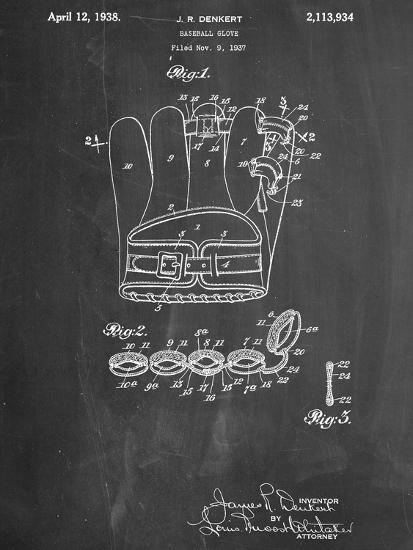 April 12, 1938. J. R. DENKERT 2,113,934
BASEBALL GLOVE
Filed Nov. 9, 1937
Fig:1.
13 15 16 15 12 18 3 24
20
2 2
10 9 8 7
17 14
19 24 6 20 22
21
23
2
1
3 3
4
5
Fig:2.
10 11 9 11 8a 8 11 7 11 11 6 6a
10a 9a 13 15 17 16 15 7a 18 22 24
22
24
22
Fig:3.
INVENTOR
James R. Denkert
BY
ATTORNEY